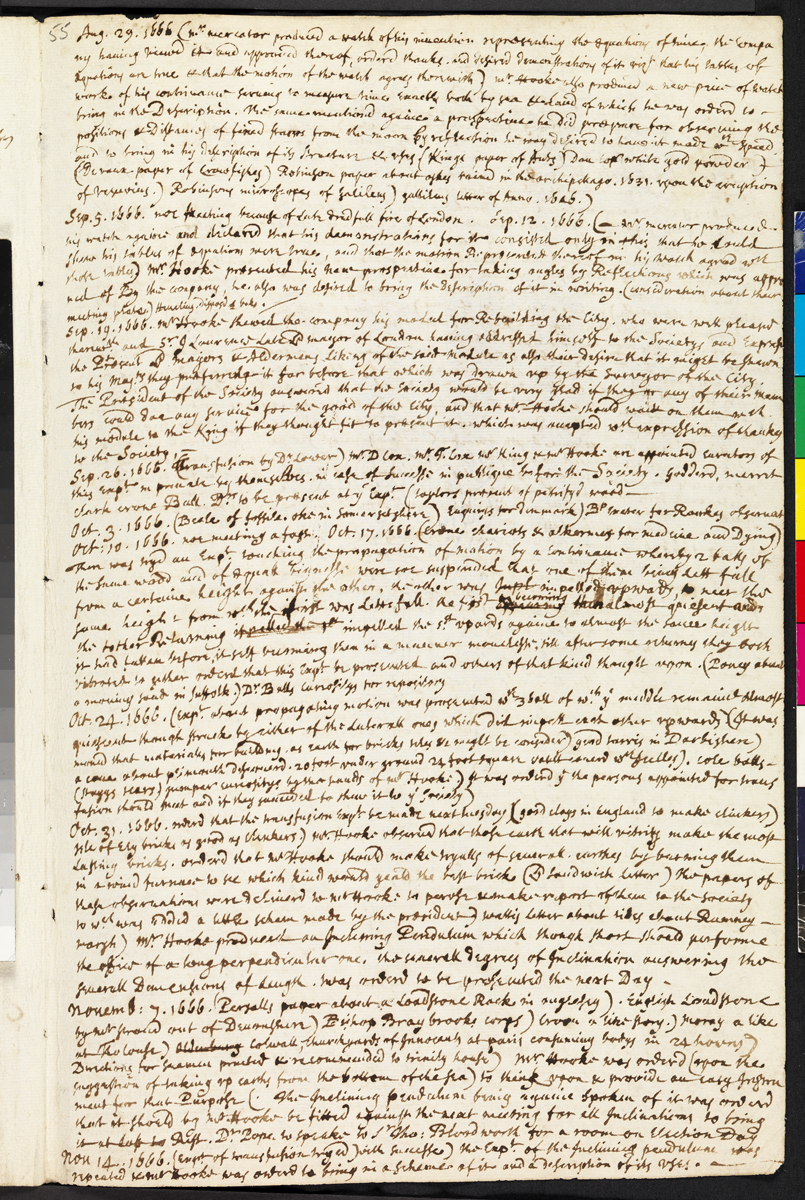 55 Aug. 29. 1666 (mr. mercator produced a watch of his invention representing the Equations of times, the compa
ny having viewed it and approved thereof, orderd thanks. and desired demonstrations of it vizt that his tables of
Equations are true & that the motion of the watch agrees therewith) mr. Hooke also produced a new piece of watch
work of his contrivance serving to measure time Exactly both by sea & land of which he was orderd to
bring in the Description. The same mentiond againe a perspective he did propose for observing the
positions & Distances of fixed starrs from the moon by reflection he was desired to have it made wth speed
and to bring in his description of its structure & uses. (Kings paper of Ants) Dan Cox white gold powder)
paper of Crawfishes) Robinson paper about ashes raind in the archipelago. 1631. upon the eruption
of vesuvius.) Robinsons microscopes of Galileus) gallileus letter of Anno.
Sep. 5. 1666. noe Meeting because of Late dredfull fire of London. Sep. 12. 1666. (mr. mercator produced
his watch againe and declared that his demonstrations for it consisted only in this that he could
shew his tables of equations were true, and that the motion Represented thereof in his watch agreed wth
those tables) Mr. Hooke presented his new perspective for taking angles by Reflections which was appro
ved of by the company, he also was desired to bring the description of it in writing. (consideration about their
meeting place.)
Sep. 19. 1666. mr. Hooke shewed the company his model for Rebuilding the City. who were well pleased
therewith and Sr. J Laurence Late Ld mayor of London having addressed himself to the Society and Express
the Present Ld mayors & Aldermens liking of the said module as also their desire that it might be shewn
to his Maty they preferring it far before that which was drawn up by the Surveyor of the City.
The President of the Society answered that the Society would be very glad if they or any of their mem
bers could doe any service for the good of the City, and that mr. Hooke should wait on them with
his module to the King if they thought fit to present it. which was accepted wth expression of thanks
to the Society.
Sep. 26. 1666. (Transfusion by Dr. Lower) mr. D Cox. mr. T. Cox mr. King & mr. Hooke are appointed curators of
this Expt. in private by themselves. in case of Successe in publique before the Society. Goddard, merret
clark crone Ball. Drs. to be present at ye Expt. (taylors present of petrifyd wood
Oct. 3. 1666. (Beale of fossile. one in Somersetshire) Enquirys for Denmark) Bp Exeter for Rookes observat
Oct. 10. 1666. noe meeting a fast. Oct. 17. 1666. (Crone chariots & alkermes for medicine and Dying)
There was tryd an Expt. touching the propagation of motion by a contrivance whereby 2 balls of
the same wood and of Equall bignesse were soe suspended that one of them being lett fall
from a certaine height against the other, the other was impelled upwards, to neer the
same height from wch the first was Lett fall. the first becoming then almost quiescent and
the tother Returning impelled the 1st. upards againe to almost the same height
it had fallen before, itself becoming then in a manner motionlesse, till after some returnes they both
vibrated together orderd that this Expt be prosecuted and others of that kind thought upon. (Povey about
a moving sand in Suffolk.) Dr. Balls Curiositys for repository
Oct. 24. 1666. (Expt. about propagating motion was prosecuted wth 3 ball of wch ye middle remained almost
quiescent though struck by either of the Laterall ones which did impell each other upwards) (It was
movd that materials for building. as earth for bricks &c might be considerd) good tarris in Darbishere)
a cave about plimouth discovered. 20 foot under ground 24 foot square
It was orderd ye the persons appointed for trans
fusion should meet and if they succeeded to shew it to ye Society)
Oct. 31. 1666. orderd that the transfusion Expt be made next tuesday (good clays in England to make clinkers)
Isle of Ely bricks as good as clinkers) mr. Hooke observed that those earth that will vitrify make the most
Lasting bricks. orderd that mr. Hooke should make tryalls of severall earthes by burning them
in a wind furnace to see which kind would yeald the best brick. (Ld Sandwich letter) the papers of
these observations were delivered to mr Hooke to peruse & make report of them to the Society
to wch was added a little scheme made by the president) wallis letter about tides about Rumney
marsh) Mr. Hooke produced an Inclining Pendulum which though short should performe
the office of a long perpendicular one, the severall degrees of Inclination answering the
severall Dimensions of Length. was orderd to be prosecuted the next Day.
Novemb: 7. 1666. (Persalls paper about a Loadstone Rock in anglesey). English Loadstone
by mr. out of Devonshire) Bishop Braybrooks corps) Croon a like story.) moray a like
at Tholouse) colwall Churchyards of Innocents at paris consuming bodys in 24 hours)
Directions for Seamen printed & recommended to trinity house) Mr. Hooke was orderd (upon the
suggestion of taking up earths from the bottom of the sea) to think upon & provide an easy Instru
ment for that Purpose. The Inclining pendulum being againe spoken of it was orderd
that it should by mr. Hooke be fitted against the next meeting for all Inclinations to bring
it to Rest. Dr. Pope to speake to Sr. Tho: Bloodworth for a room on Election Day
Nov 14. 1666. (Expt of transfusion tryed) with successe) the Expt. of the Inclining pendulum was
repeated & mr Hooke was orderd to bring in a scheme of it and a description of its uses.